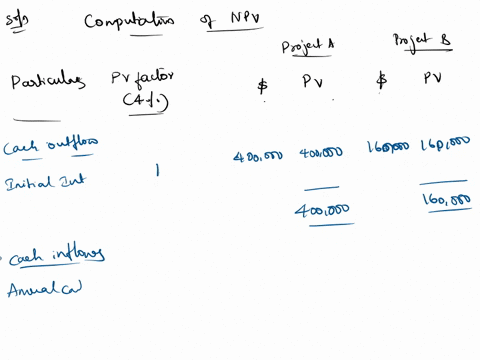 Soln Computation of NPV
Project A Project B
Particulars PV factor $ PV $ PV
(4%)
Cash outflow
Initial Int 1 400,000 400,000 160,000 160,000
400,000 160,000
Cash inflows
Annual Ca